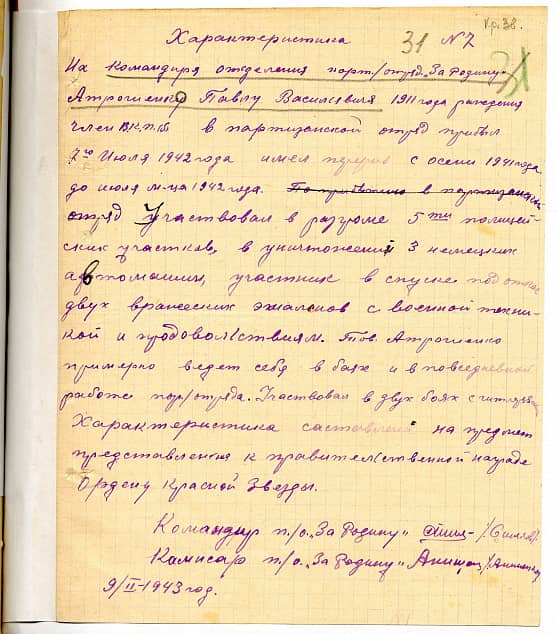 Кр. 38.
Характеристика 31 № 7
31
На Командира отделения парт/отряд. "За Родину"
Атрошенко Павлу Васильевича 1911 года рождения
член ВКП/б в партизанской отряд прибыл
7го Июля 1942 года имея перерыв с осени 1941 года
до июля м-ца 1942 года. По прибытию в партизанский
отряд Участвовал в разгроме 5ти полицей-
ских участков, в уничтожений 3 немецких
автомашин, участник в спуске под откос
двух вражеских эшалонов с военной техни-
кой и продовольствиям. Тов. Атрошенко
примерно ведет себя в боях и в повседневной
работе пар/отряда. Участвовал в двух боях с
Характеристика саставлена на предмет
представления к правительственной награде
Ордену Красной Звезды.
Командир п/о. "За Родину"
Камисар п/о. "За Родину"
9/II-1943 год.